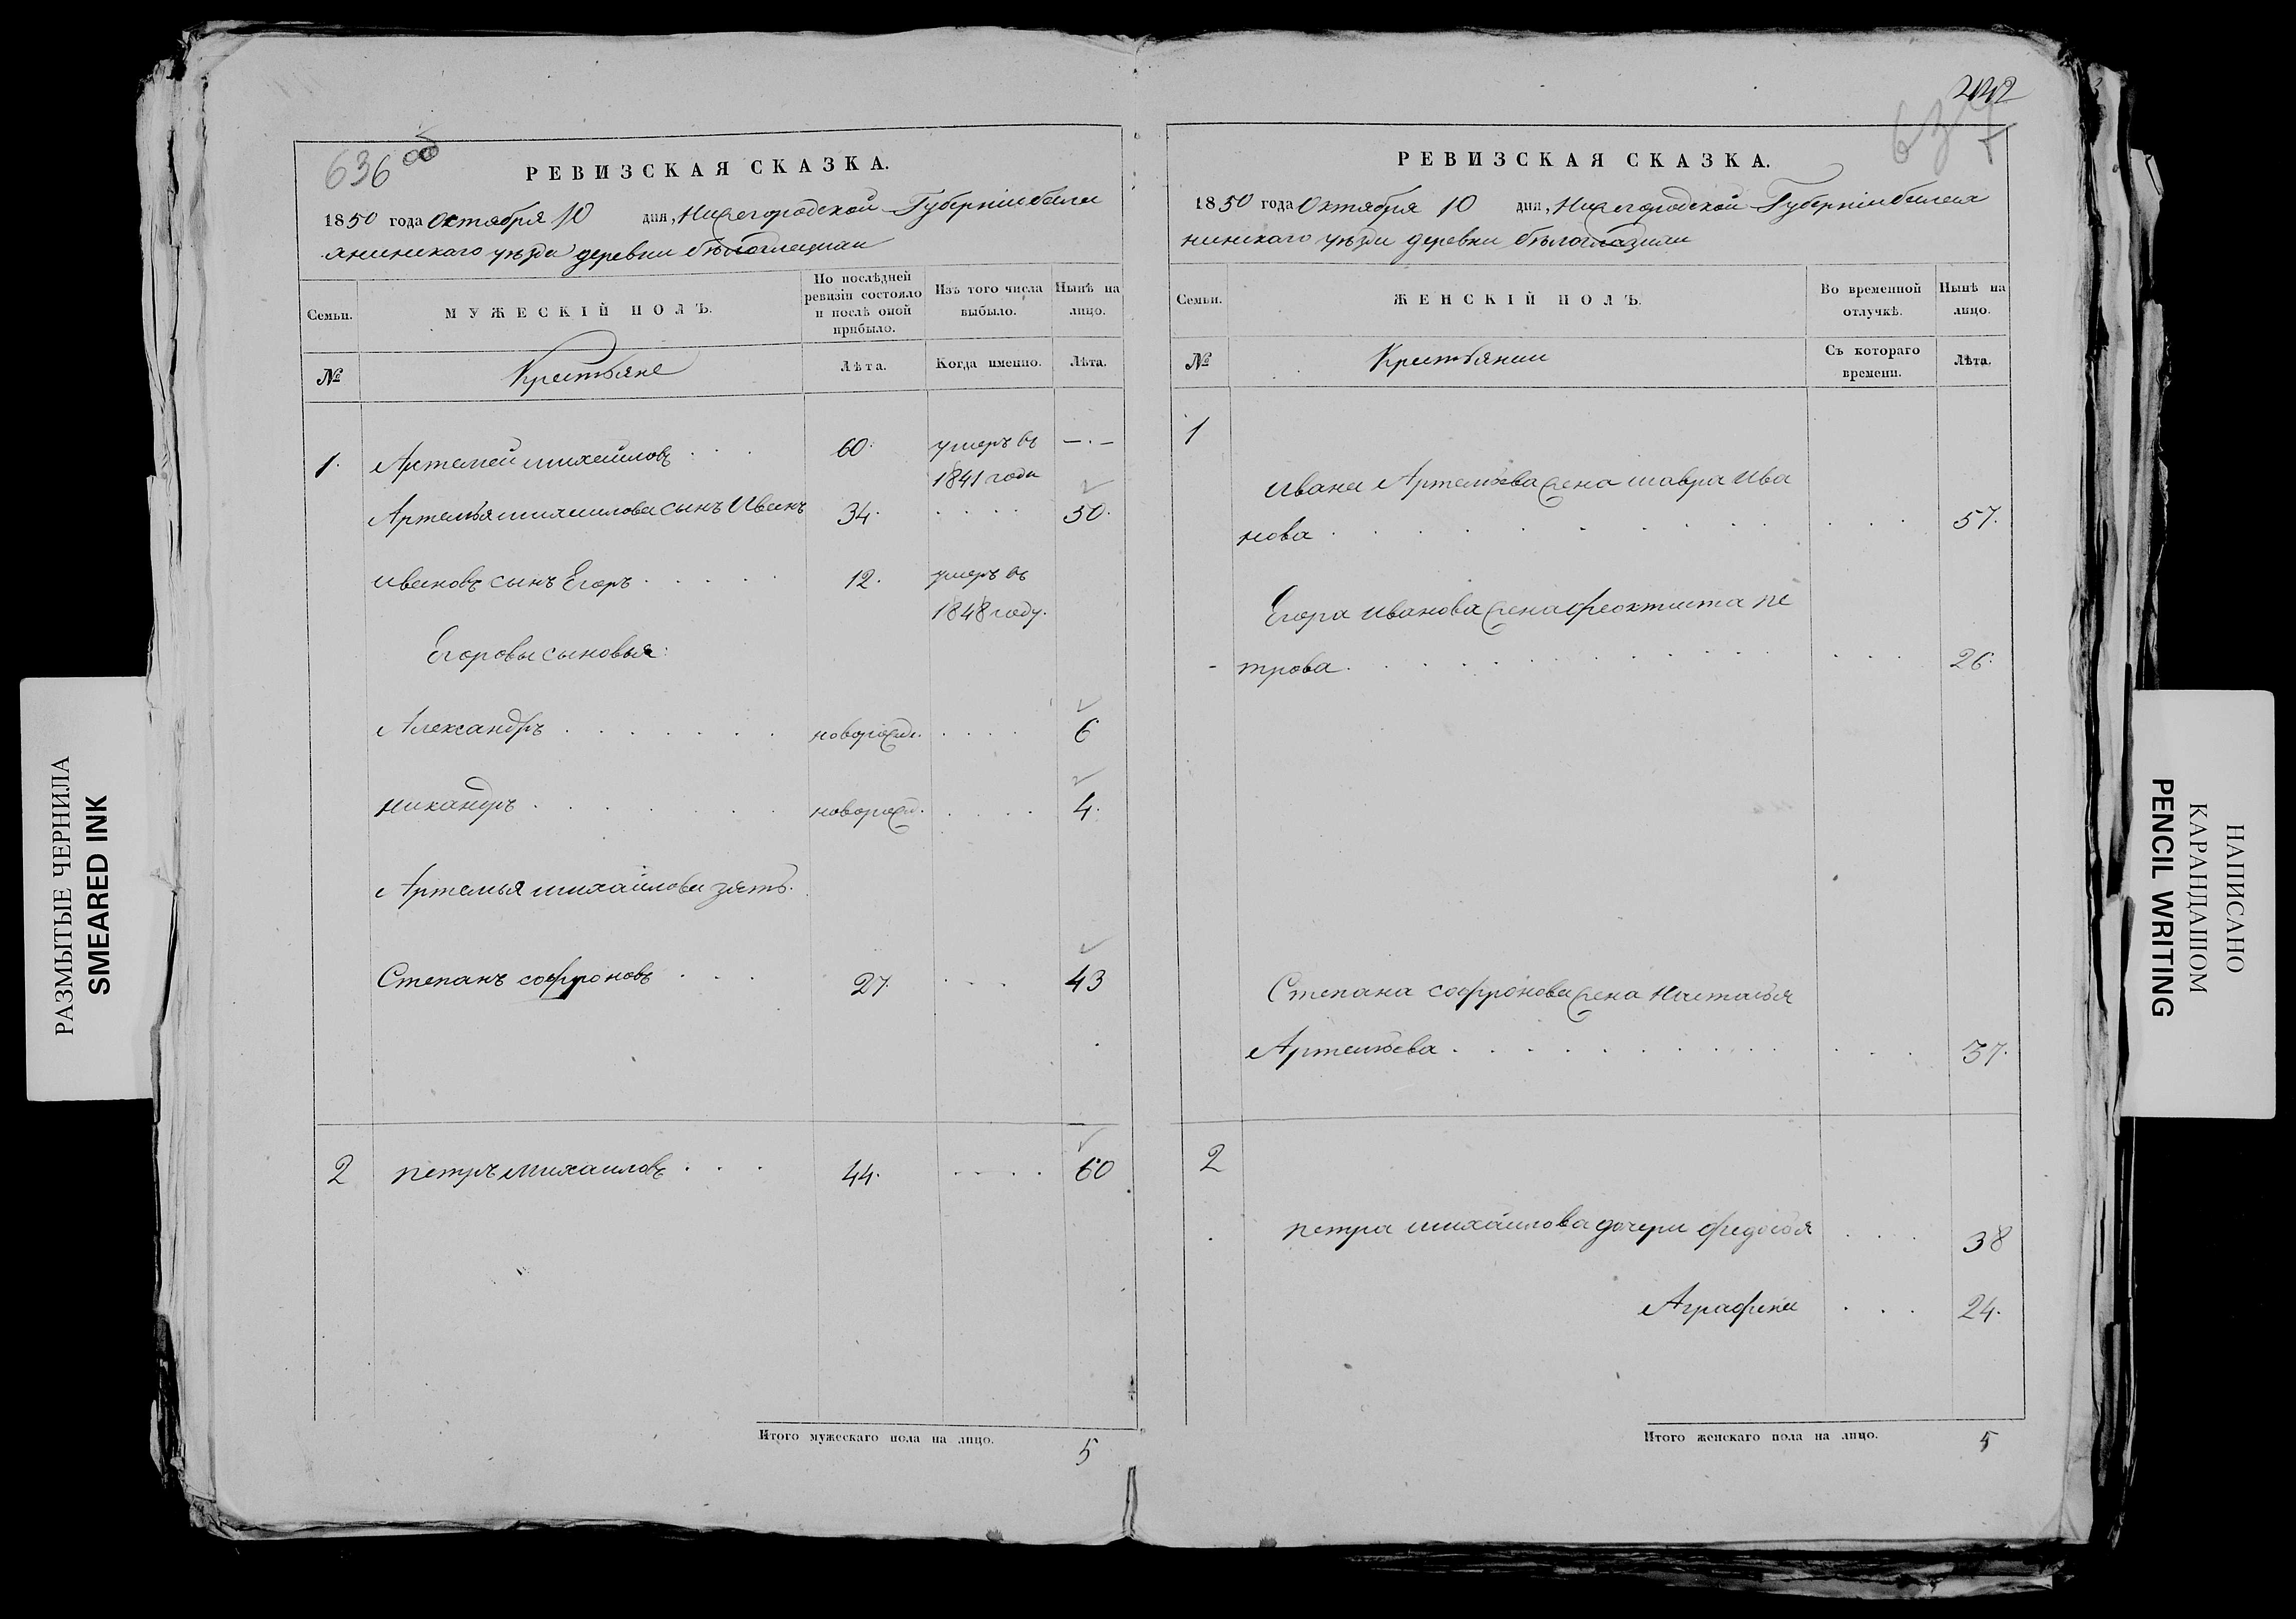 636 об
РЕВИЗСКАЯ СКАЗКА.
1850 года октября 10 дня, Нижегородской Губерніи бала
хнинскаго уѣзда деревни
Семьи.
МУЖЕСКІЙ ПОЛЪ.
По послѣдней ревизіи состояло и послѣ оной прибыло.
Изъ того числа выбыло.
Нынѣ на лицо.
№
Крестьяне
Лѣта.
Когда именно.
Лѣта.
1. Артемей михайловъ . . . 60. умеръ въ —.—
1841 года
Артемья михайлова сынъ Иванъ 34. . . . . 50.
ивановъ сынъ Егоръ . . . . . 12. умеръ въ
1848 году.
Егоровы сыновья:
Александръ . . . . . . . новорожд. . . . . 6
никандръ . . . . . . . новорожд. . . . . 4.
Артемья михайлова зять.
Степанъ софроновъ . . . 27. . . . 43
2 петръ михаиловъ . . . 44. . . . . 60
Итого мужескаго пола на лицо. 5
242
637
РЕВИЗСКАЯ СКАЗКА.
1850 года Октября 10 дня, Нижегородской Губерніи балах
нинскаго уѣзда деревни
Семьи.
ЖЕНСКІЙ ПОЛЪ.
Во временной отлучкѣ.
Нынѣ на лицо.
№
Крестьянки
Съ котораго времени.
Лѣта.
1
Ивана Артемьева жена мавра Ива
нова . . . . . . . . . . . . . 57.
Егора иванова жена феоктиста пе
трова . . . . . . . . . . . . . 26.
Степана софронова жена Настасья
Артемьева . . . . . . . . . . . . 37.
2
петра михайлова дочери федосья . . . 38
Аграфена . . . 24.
Итого женскаго пола на лицо. 5
РАЗМЫТЫЕ ЧЕРНИЛА
SMEARED INK
НАПИСАНО
КАРАНДАШОМ
PENCIL WRITING